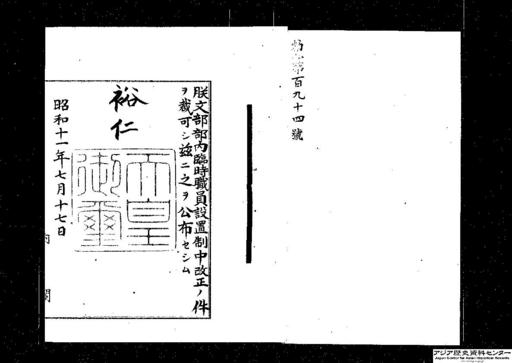 勅令第百九十四號
朕文部部内臨時職員設置制中改正ノ件
ヲ裁可シ茲ニ之ヲ公布セシム
裕仁
天皇御璽
昭和十一年七月十七日
内閣
アジア歴史資料センター
Japan Center for Asian Historical Records